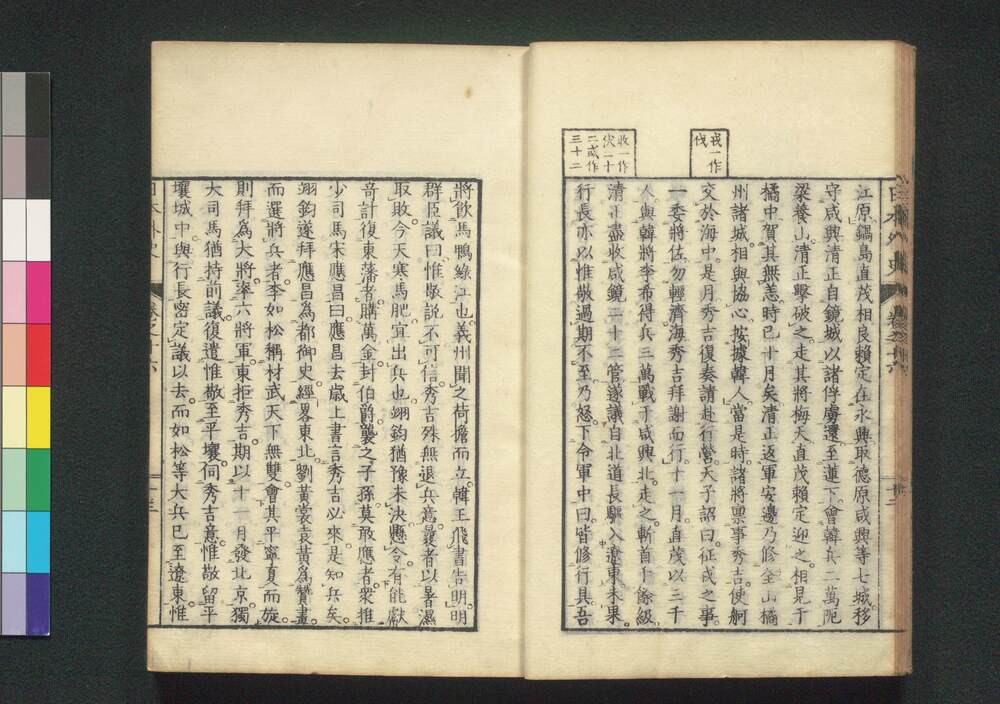 戎一作
伐
收一作
伏一十
二或作
三十二
江原鍋島直茂相良賴定在永興取德原咸興等七城移
守咸興清正自鏡城以諸俘虜還至蓮下會韓兵二萬阨
梁養山清正擊破之走其將梅天直茂賴定迎之相見于
橘中賀其無恙時已十月矣清正返軍安邊乃修全山橘
州諸城相與協心按據韓人當是時諸將禀事秀吉使舸
交於海中是月秀吉復奏請赴行營天子詔曰征戎之事
一委將佐勿輕濟海秀吉拜謝而行十一月直茂以三千
人與韓將李希得兵三萬戰于咸興北走之斬首千餘級
清正盡收咸鏡二十二管遂議自北道長驅入遼東未果
行長亦以惟敬過期不至乃怒下令軍中曰皆修行具吾
將飲馬鴨綠江也義州聞之荷擔而立韓王飛書告明明
群臣議曰惟敬說不可信秀吉殊無退兵意曩者以暑濕
取敗今天寒馬肥宜出兵也翊鈞猶豫未決懸令有能獻
奇計復東藩者購萬金封伯爵襲之子孫莫敢應者衆推
少司馬宋應昌曰應昌去歲上書言秀吉必來是知兵矣
翊鈞遂拜應昌爲都御史經畧東北劉黃裳袁黃爲贊畫
而選將兵者李如松稱材武天下無雙會其平寧夏而旋
則拜爲大將率六將軍東拒秀吉期以十一月發北京獨
大司馬猶持前議復遣惟敬至平壤伺秀吉意惟敬留平
壤城中與行長密定議以去而如松等大兵已至遼東惟